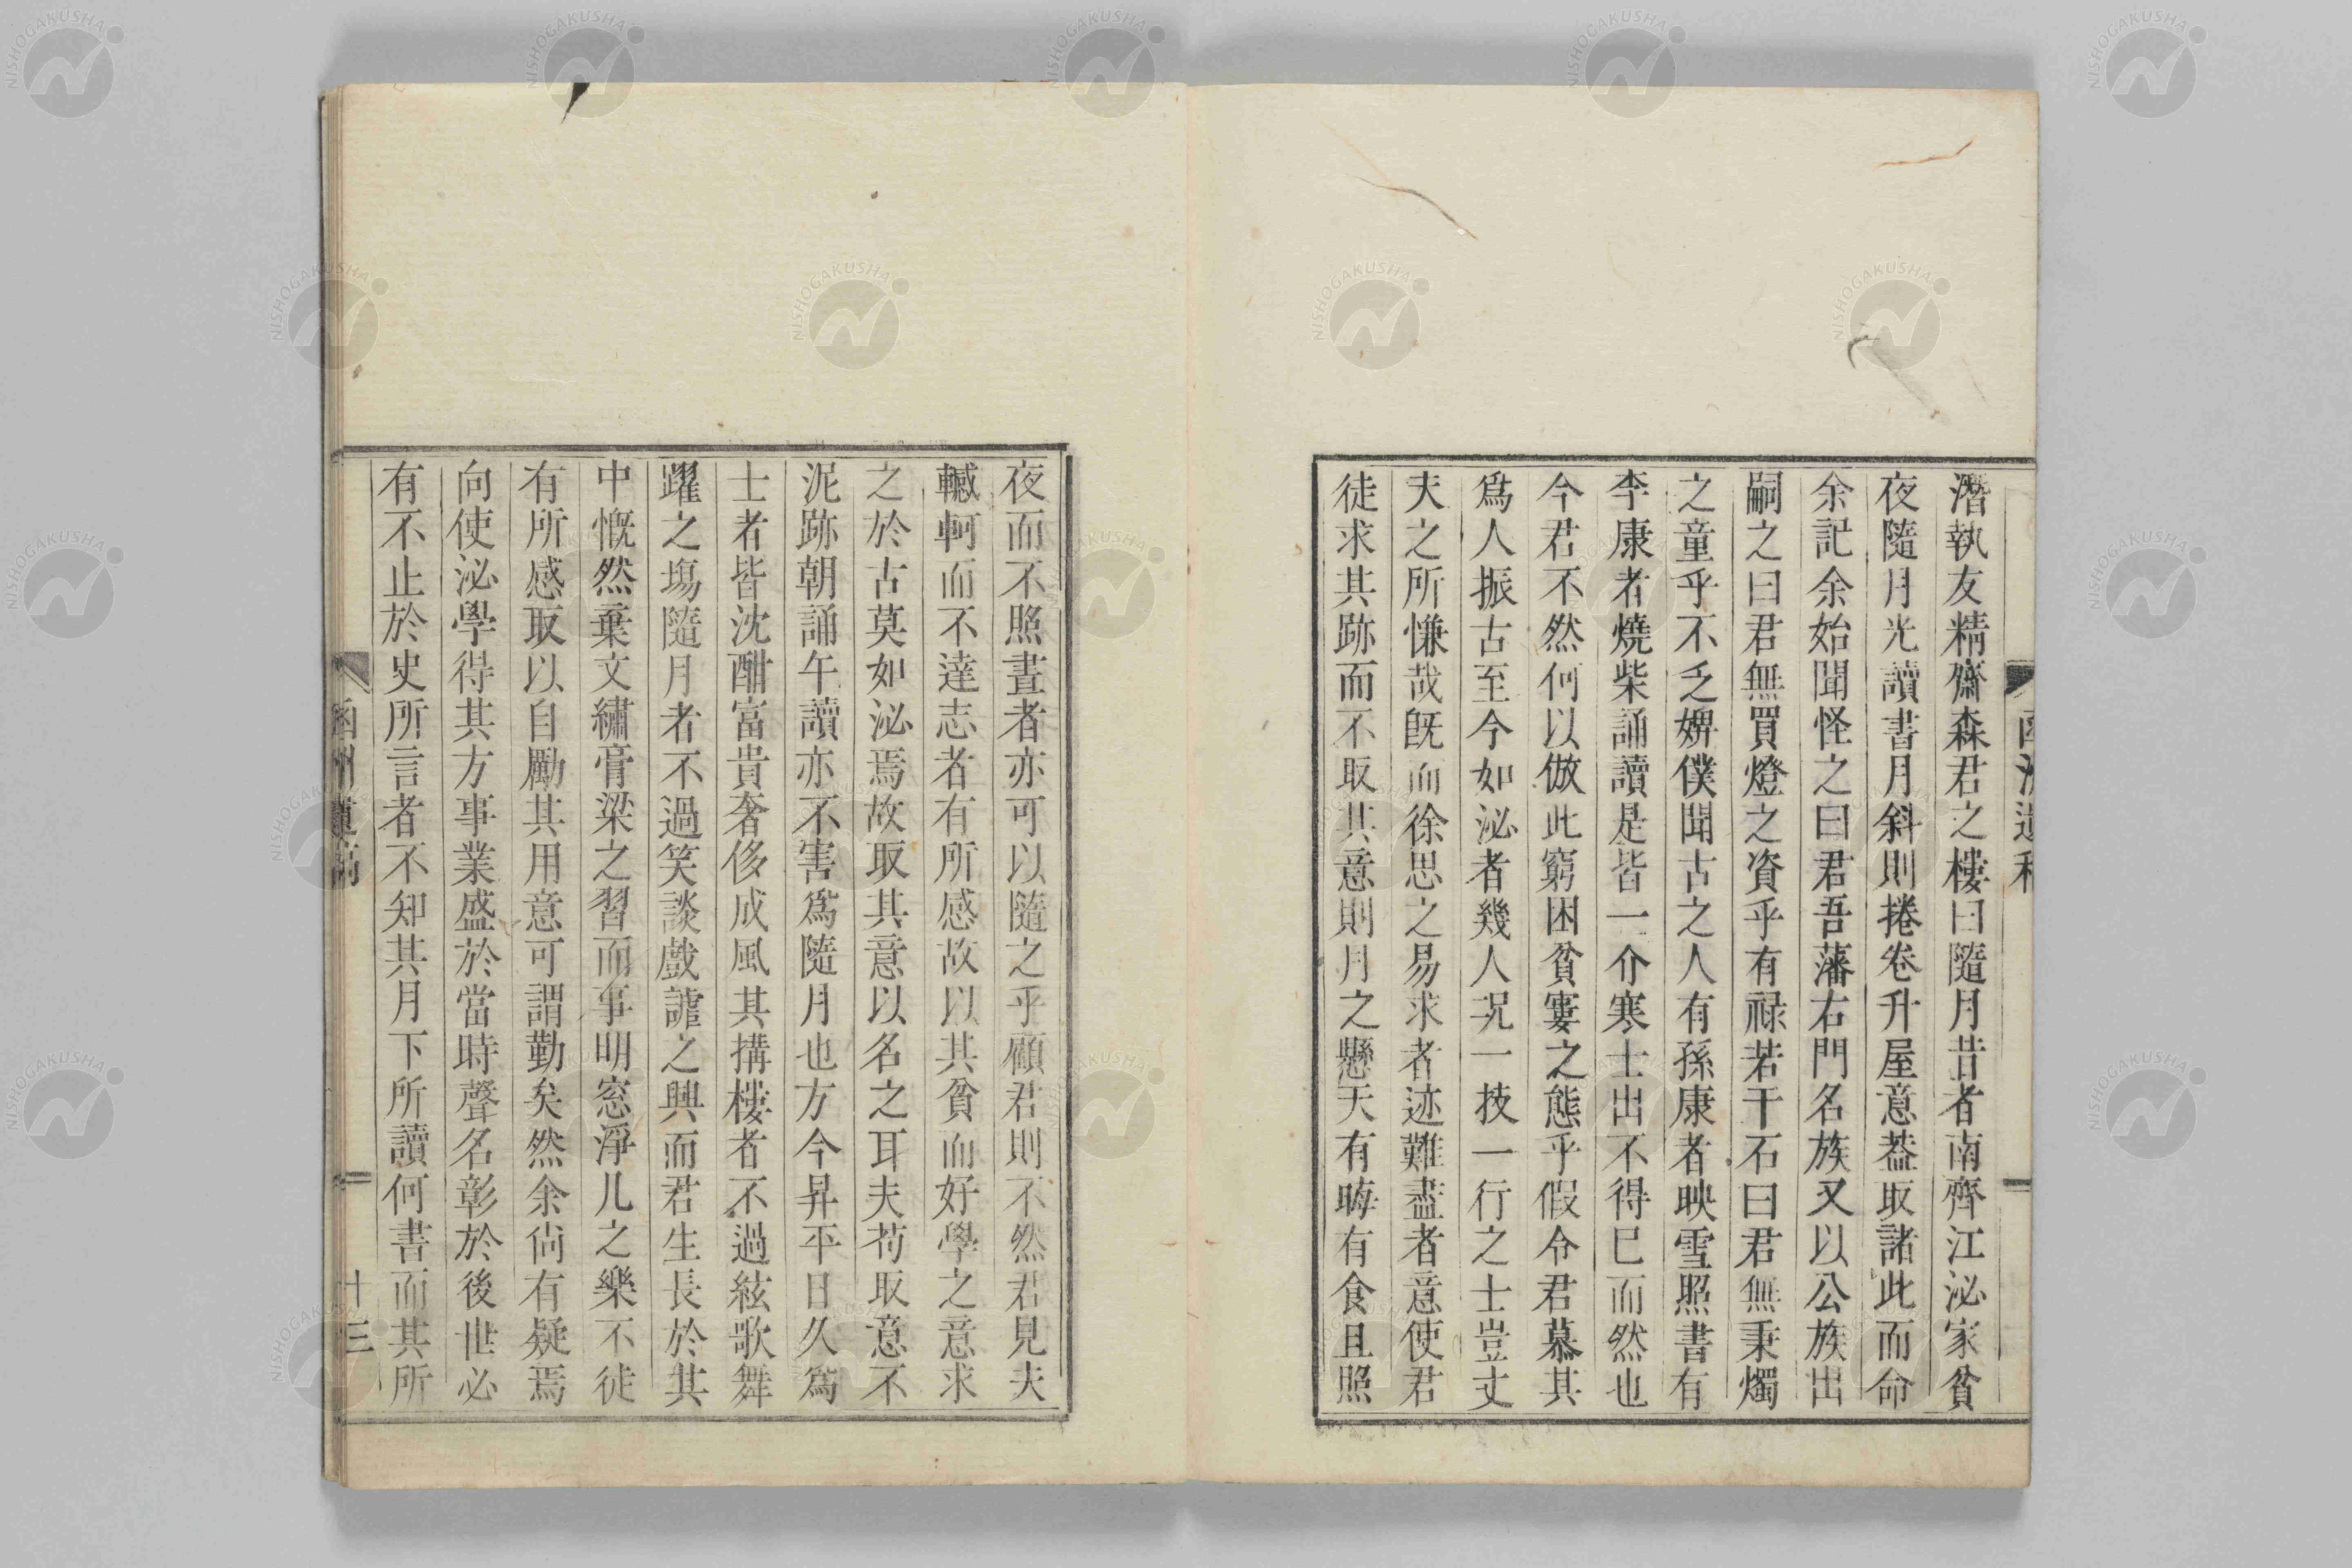 潛執友精齋森君之樓曰隨月昔者南齊江泌家貧
夜隨月光讀書月斜則捲卷升屋意葢取諸此而命
余記余始聞怪之曰君吾藩右門名族又以公族出
嗣之曰君無買燈之資乎有祿若干石曰君無秉燭
之童乎不乏婢僕聞古之人有孫康者映雪照書有
李康者燒柴誦讀是皆一介寒士出不得已而然也
今君不然何以倣此窮困貧寠之態乎假令君慕其
爲人振古至今如泌者幾人况一技一行之士豈丈
夫之所慊哉旣而徐思之易求者迹難盡者意使君
徒求其跡而不取其意則月之懸天有晦有食且照
夜而不照晝者亦可以隨之乎顧君則不然君見夫
轗軻而不達志者有所感故以其貧而好學之意求
之於古莫如泌焉故取其意以名之耳夫苟取意不
泥跡朝誦午讀亦不害爲隨月也方今昇平日久爲
士者皆沈酣富貴奢侈成風其搆樓者不過絃歌舞
躍之塲隨月者不過笑談戲謔之興而君生長於其
中慨然棄文繡膏粱之習而事明窓淨几之樂不徒
有所感取以自勵其用意可謂勤矣然余尙有疑焉
向使泌學得其方事業盛於當時聲名彰於後世必
有不止於史所言者不知其月下所讀何書而其所
函州遺稿 十三
NISHOGAKUSHA